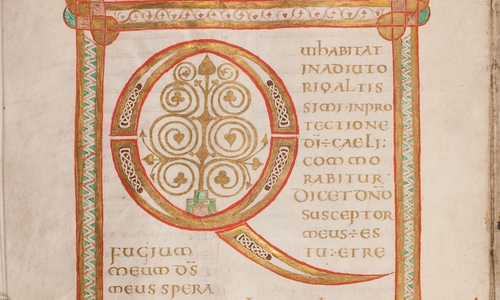 Q
UIHABITAT
INADIUTO
RIOALTIS
SIMI·INPRO
TECTIONE
DĪ÷CAELI:
COMMO
RABITUR·
DICETDN̄O
SUSCEPTOR
MEUS÷ES
TU÷ETRE
FUGIUM
MEUM D̄S
MEUS SPERA